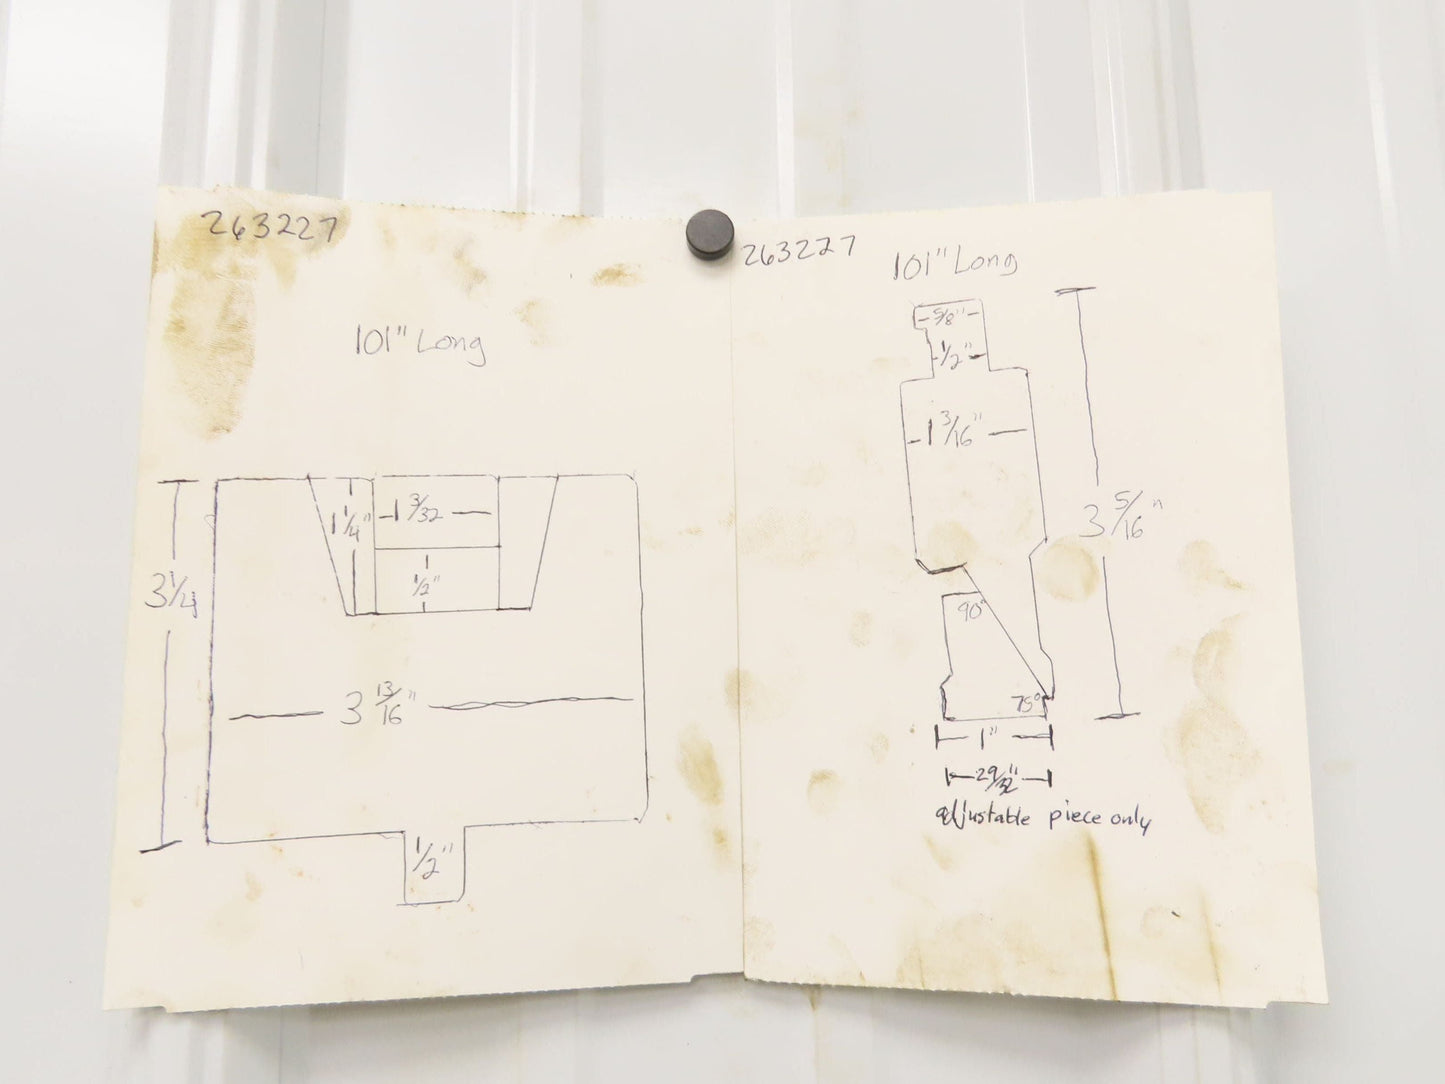 263227
101" Long
1 1/4"
1 3/32
1/2"
3 1/4
3 13/16"
1/2"
263227
101" Long
5/8"
1/2"
1 3/16"
3 5/16"
90°
75°
1"
29/32"
adjustable piece only